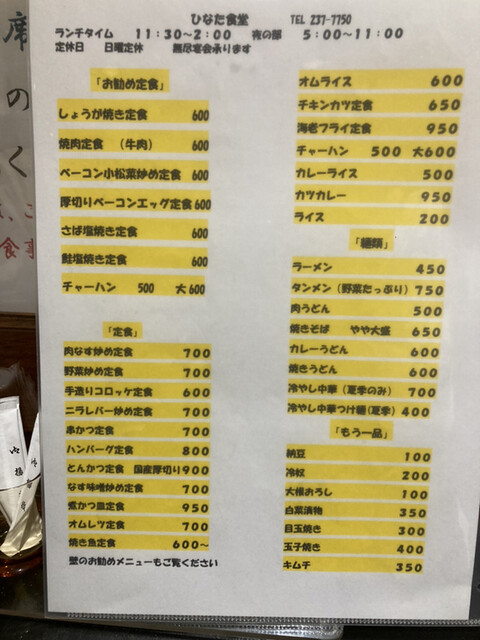 ひなた食堂　TEL 237-7750
ランチタイム　11:30~2:00　夜の部　5:00~11:00
定休日　日曜定休　無尽宴会承ります
「お勧め定食」
しょうが焼き定食　600
焼肉定食　(牛肉)　600
ベーコン小松菜炒め定食　600
厚切りベーコンエッグ定食600
さば塩焼き定食　600
鮭塩焼き定食　600
チャーハン　500　大600
「定食」
肉なす炒め定食　700
野菜炒め定食　700
手造りコロッケ定食　600
ニラレバー炒め定食　700
串かつ定食　700
ハンバーグ定食　800
とんかつ定食　国産厚切り900
なす味噌炒め定食　700
煮かつ皿定食　950
オムレツ定食　700
焼き魚定食　600~
壁のお勧めメニューもご覧ください
オムライス　600
チキンカツ定食　650
海老フライ定食　950
チャーハン　500　大600
カレーライス　500
カツカレー　950
ライス　200
「麺類」
ラーメン　450
タンメン(野菜たっぷり)750
肉うどん　500
焼きそば　やや大盛　650
カレーうどん　600
焼きうどん　600
冷やし中華(夏季のみ)　700
冷やし中華つけ麺(夏季)400
「もう一品」
納豆　100
冷奴　200
大根おろし　100
白菜漬物　350
目玉焼き　300
玉子焼き　400
キムチ　350
席
の
く
食事